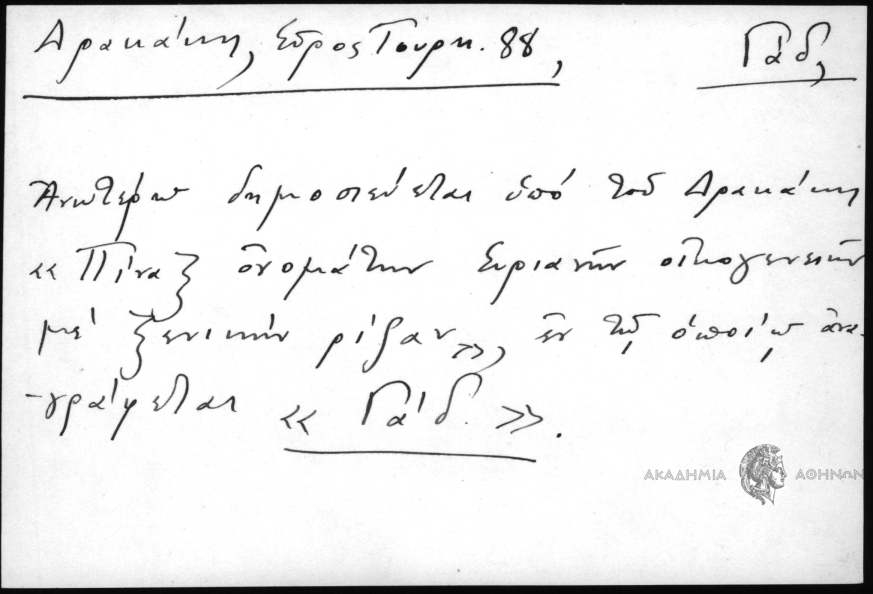 Δρακάκη, Σύρος Τουρκ. 88,
Γάδ,
Ἀνωτέρω δημοσιεύεται ὑπό τοῦ Δρακάκη
«Πίναξ ὀνομάτων Συριανῶν οἰκογενειῶν
μέ ξενικήν ρίζαν», ἐν τῷ ὁποίῳ ἀνα-
-γράφεται «Γάδ.».
ΑΚΑΔΗΜΙΑ ΑΘΗΝΩΝ